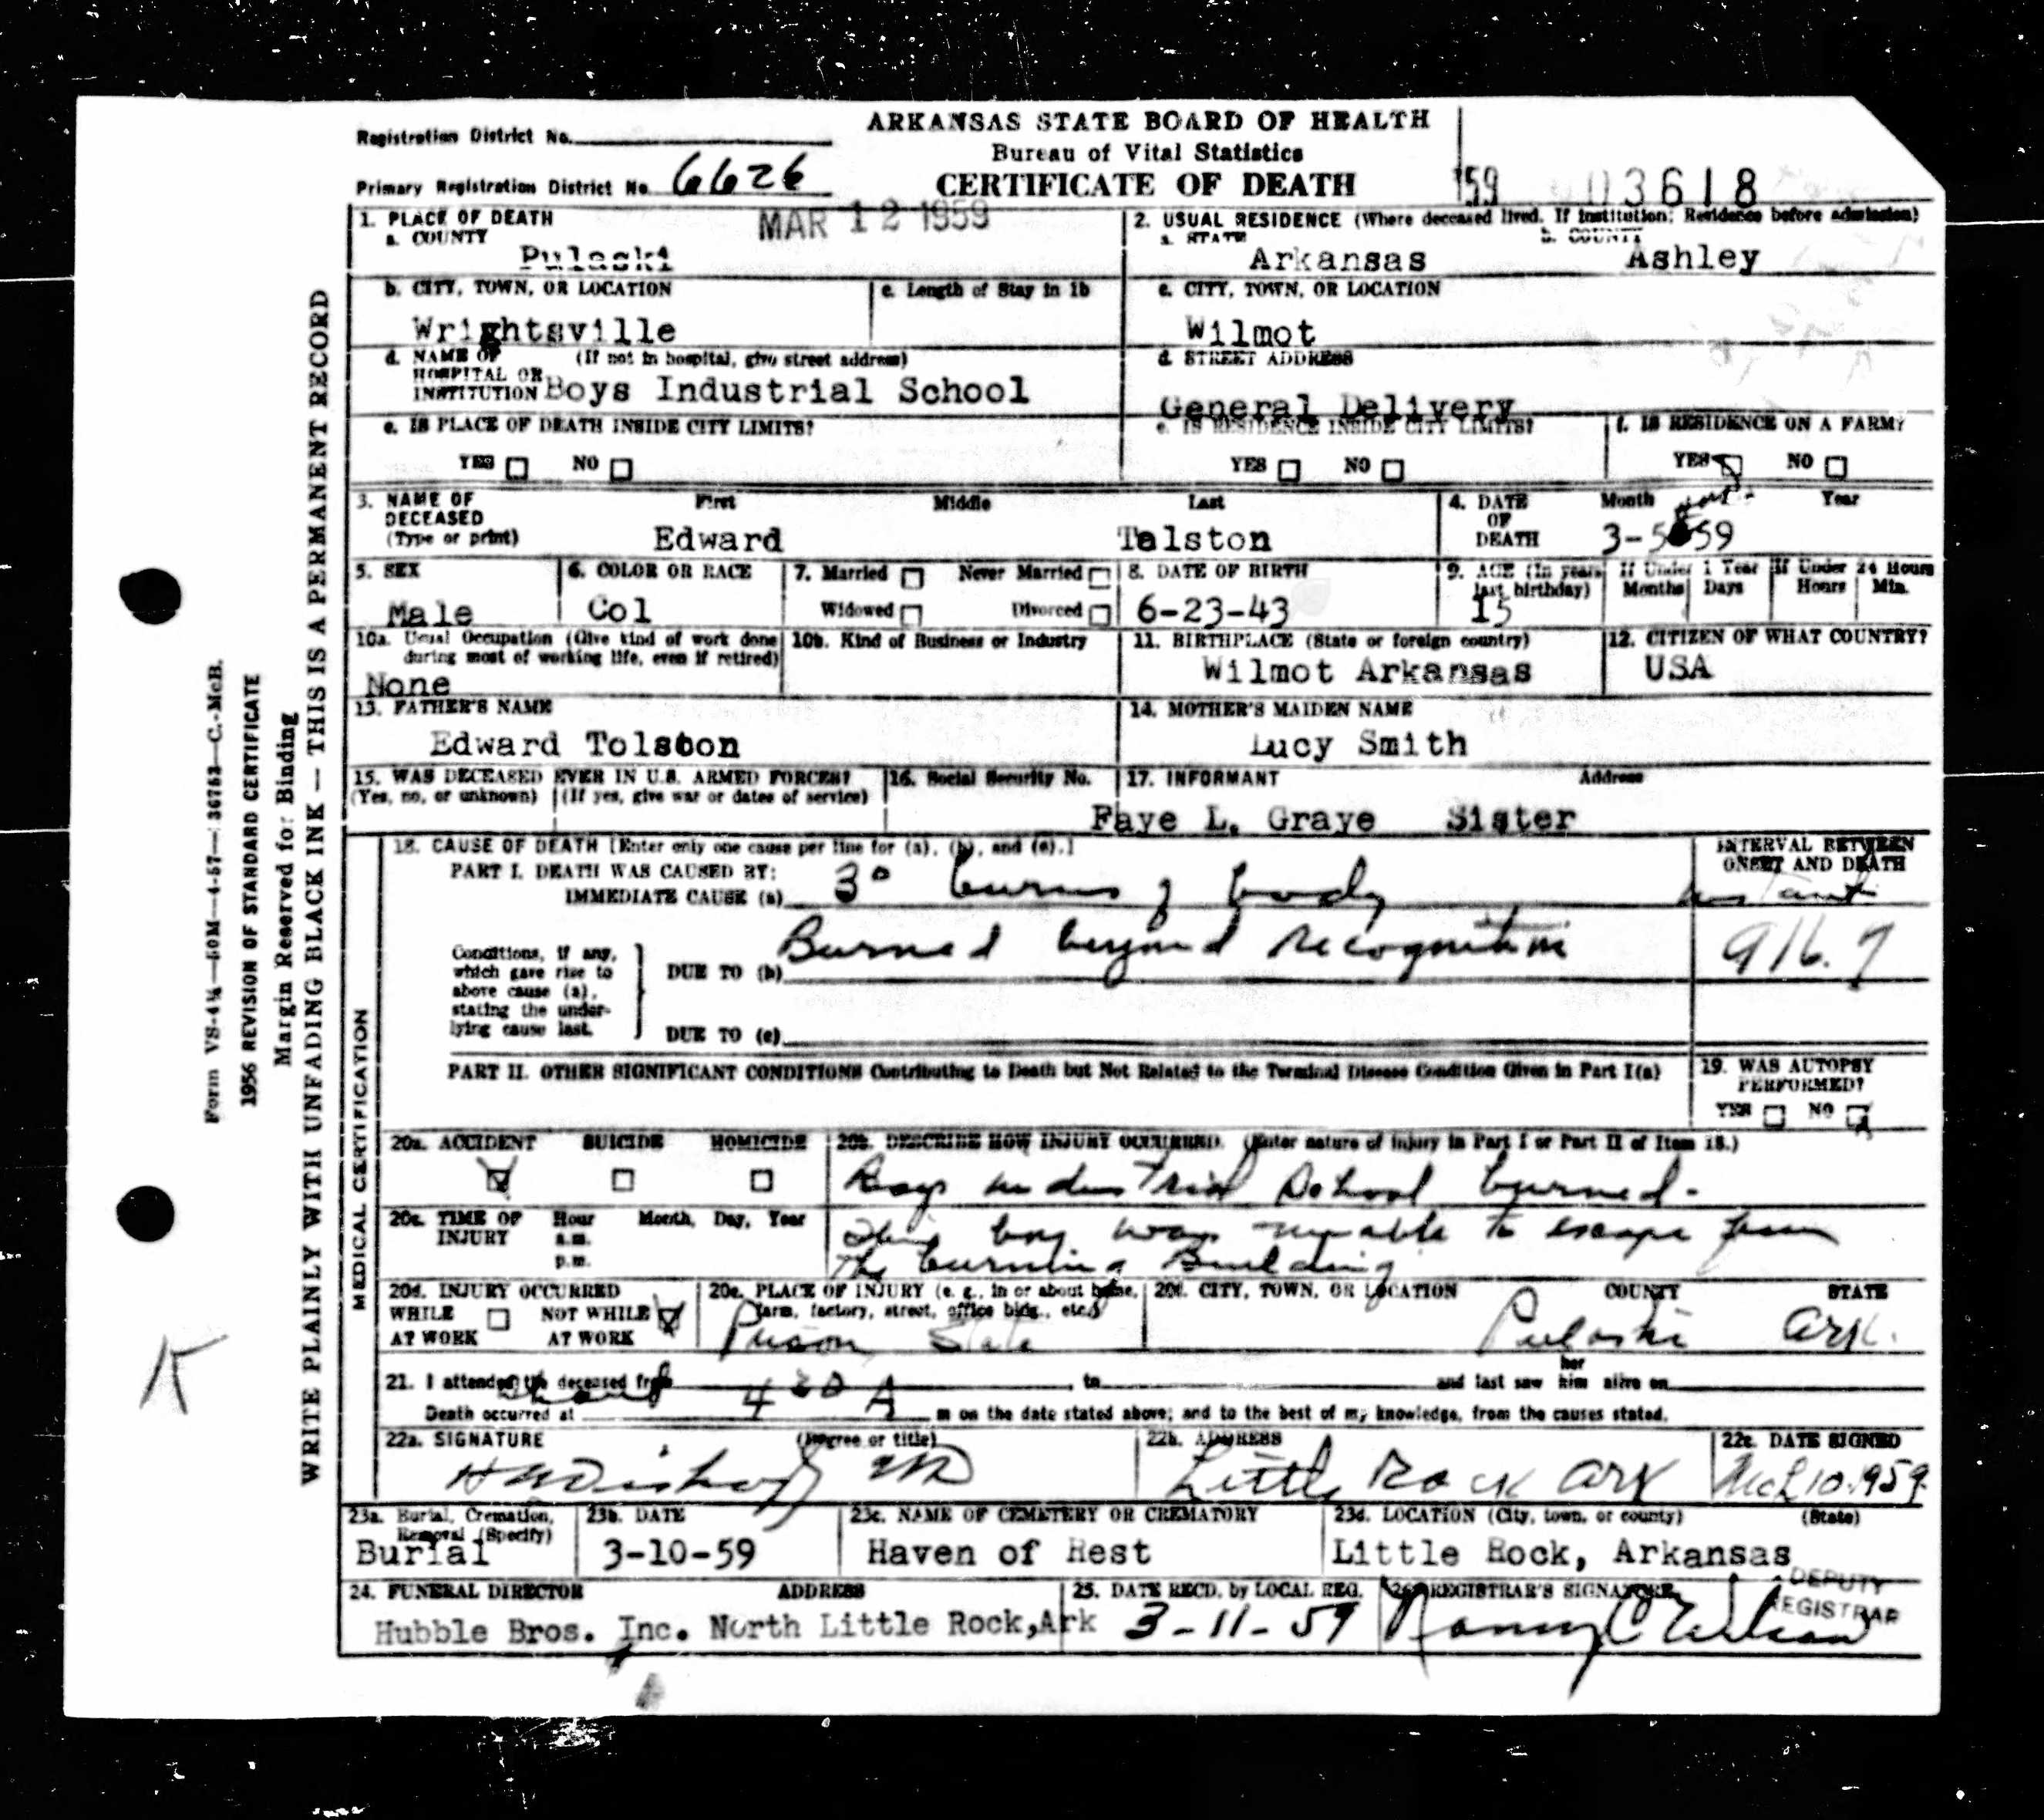 ARKANSAS STATE BOARD OF HEALTH
Bureau of Vital Statistics
CERTIFICATE OF DEATH
Registration District No.
Primary Registration District No. 6626
159 03618
MAR 12 1959
1. PLACE OF DEATH
a. COUNTY
Pulaski
2. USUAL RESIDENCE (Where deceased lived. If institution: Residence before admission)
a. STATE b. COUNTY
Arkansas Ashley
b. CITY, TOWN, OR LOCATION c. Length of Stay in 1b
Wrightsville
c. CITY, TOWN, OR LOCATION
Wilmot
d. NAME OF (If not in hospital, give street address)
HOSPITAL OR
INSTITUTION Boys Industrial School
d. STREET ADDRESS
General Delivery
e. IS PLACE OF DEATH INSIDE CITY LIMITS?
YES NO
e. IS RESIDENCE INSIDE CITY LIMITS?
YES NO
f. IS RESIDENCE ON A FARM?
YES NO
3. NAME OF First Middle Last
DECEASED
(Type or print) Edward Talston
4. DATE Month Year
OF
DEATH 3-5-59
5. SEX
Male
6. COLOR OR RACE
Col
7. Married Never Married
Widowed Divorced
8. DATE OF BIRTH
6-23-43
9. AGE (In years
last birthday)
15
If Under 1 Year If Under 24 Hours
Months Days Hours Min.
10a. Usual Occupation (Give kind of work done
during most of working life, even if retired)
None
10b. Kind of Business or Industry
11. BIRTHPLACE (State or foreign country)
Wilmot Arkansas
12. CITIZEN OF WHAT COUNTRY?
USA
13. FATHER'S NAME
Edward Tolston
14. MOTHER'S MAIDEN NAME
Lucy Smith
15. WAS DECEASED EVER IN U.S. ARMED FORCES?
(Yes, no, or unknown) (If yes, give war or dates of service)
16. Social Security No.
17. INFORMANT Address
Faye L. Graye Sister
MEDICAL CERTIFICATION
18. CAUSE OF DEATH [Enter only one cause per line for (a), (b), and (c).]
INTERVAL BETWEEN
ONSET AND DEATH
PART I. DEATH WAS CAUSED BY:
IMMEDIATE CAUSE (a) 3° burns of body instant
Burned beyond recognition
916.7
Conditions, if any,
which gave rise to
above cause (a),
stating the under-
lying cause last.
DUE TO (b)
DUE TO (c)
PART II. OTHER SIGNIFICANT CONDITIONS Contributing to Death but Not Related to the Terminal Disease Condition Given in Part I(a)
19. WAS AUTOPSY
PERFORMED?
YES NO
20a. ACCIDENT SUICIDE HOMICIDE
20b. DESCRIBE HOW INJURY OCCURRED. (Enter nature of injury in Part I or Part II of Item 18.)
Boys industrial School burned-
This boy was unable to escape from
the burning Building
20c. TIME OF Hour Month, Day, Year
INJURY a.m.
p.m.
20d. INJURY OCCURRED
WHILE NOT WHILE
AT WORK AT WORK
20e. PLACE OF INJURY (e. g., in or about home,
farm, factory, street, office bldg., etc.)
Prison State
20f. CITY, TOWN, OR LOCATION COUNTY STATE
Pulaski Ark.
21. I attended the deceased from , to and last saw her him alive on
Death occurred at about 430 A m on the date stated above; and to the best of my knowledge, from the causes stated.
22a. SIGNATURE (Degree or title)
MD
22b. ADDRESS
Little Rock Ark
22c. DATE SIGNED
Mch 10.1959.
23a. Burial, Cremation,
Removal (Specify)
Burial
23b. DATE
3-10-59
23c. NAME OF CEMETERY OR CREMATORY
Haven of Rest
23d. LOCATION (City, town, or county) (State)
Little Rock, Arkansas
24. FUNERAL DIRECTOR ADDRESS
Hubble Bros. Inc. North Little Rock,Ark
25. DATE RECD. by LOCAL REG.
3-11-59
26. REGISTRAR'S SIGNATURE
DEPUTY
REGISTRAR
Form VS-4¼—50M—4-57—36753—C.-McB.
1956 REVISION OF STANDARD CERTIFICATE
Margin Reserved for Binding
WRITE PLAINLY WITH UNFADING BLACK INK — THIS IS A PERMANENT RECORD